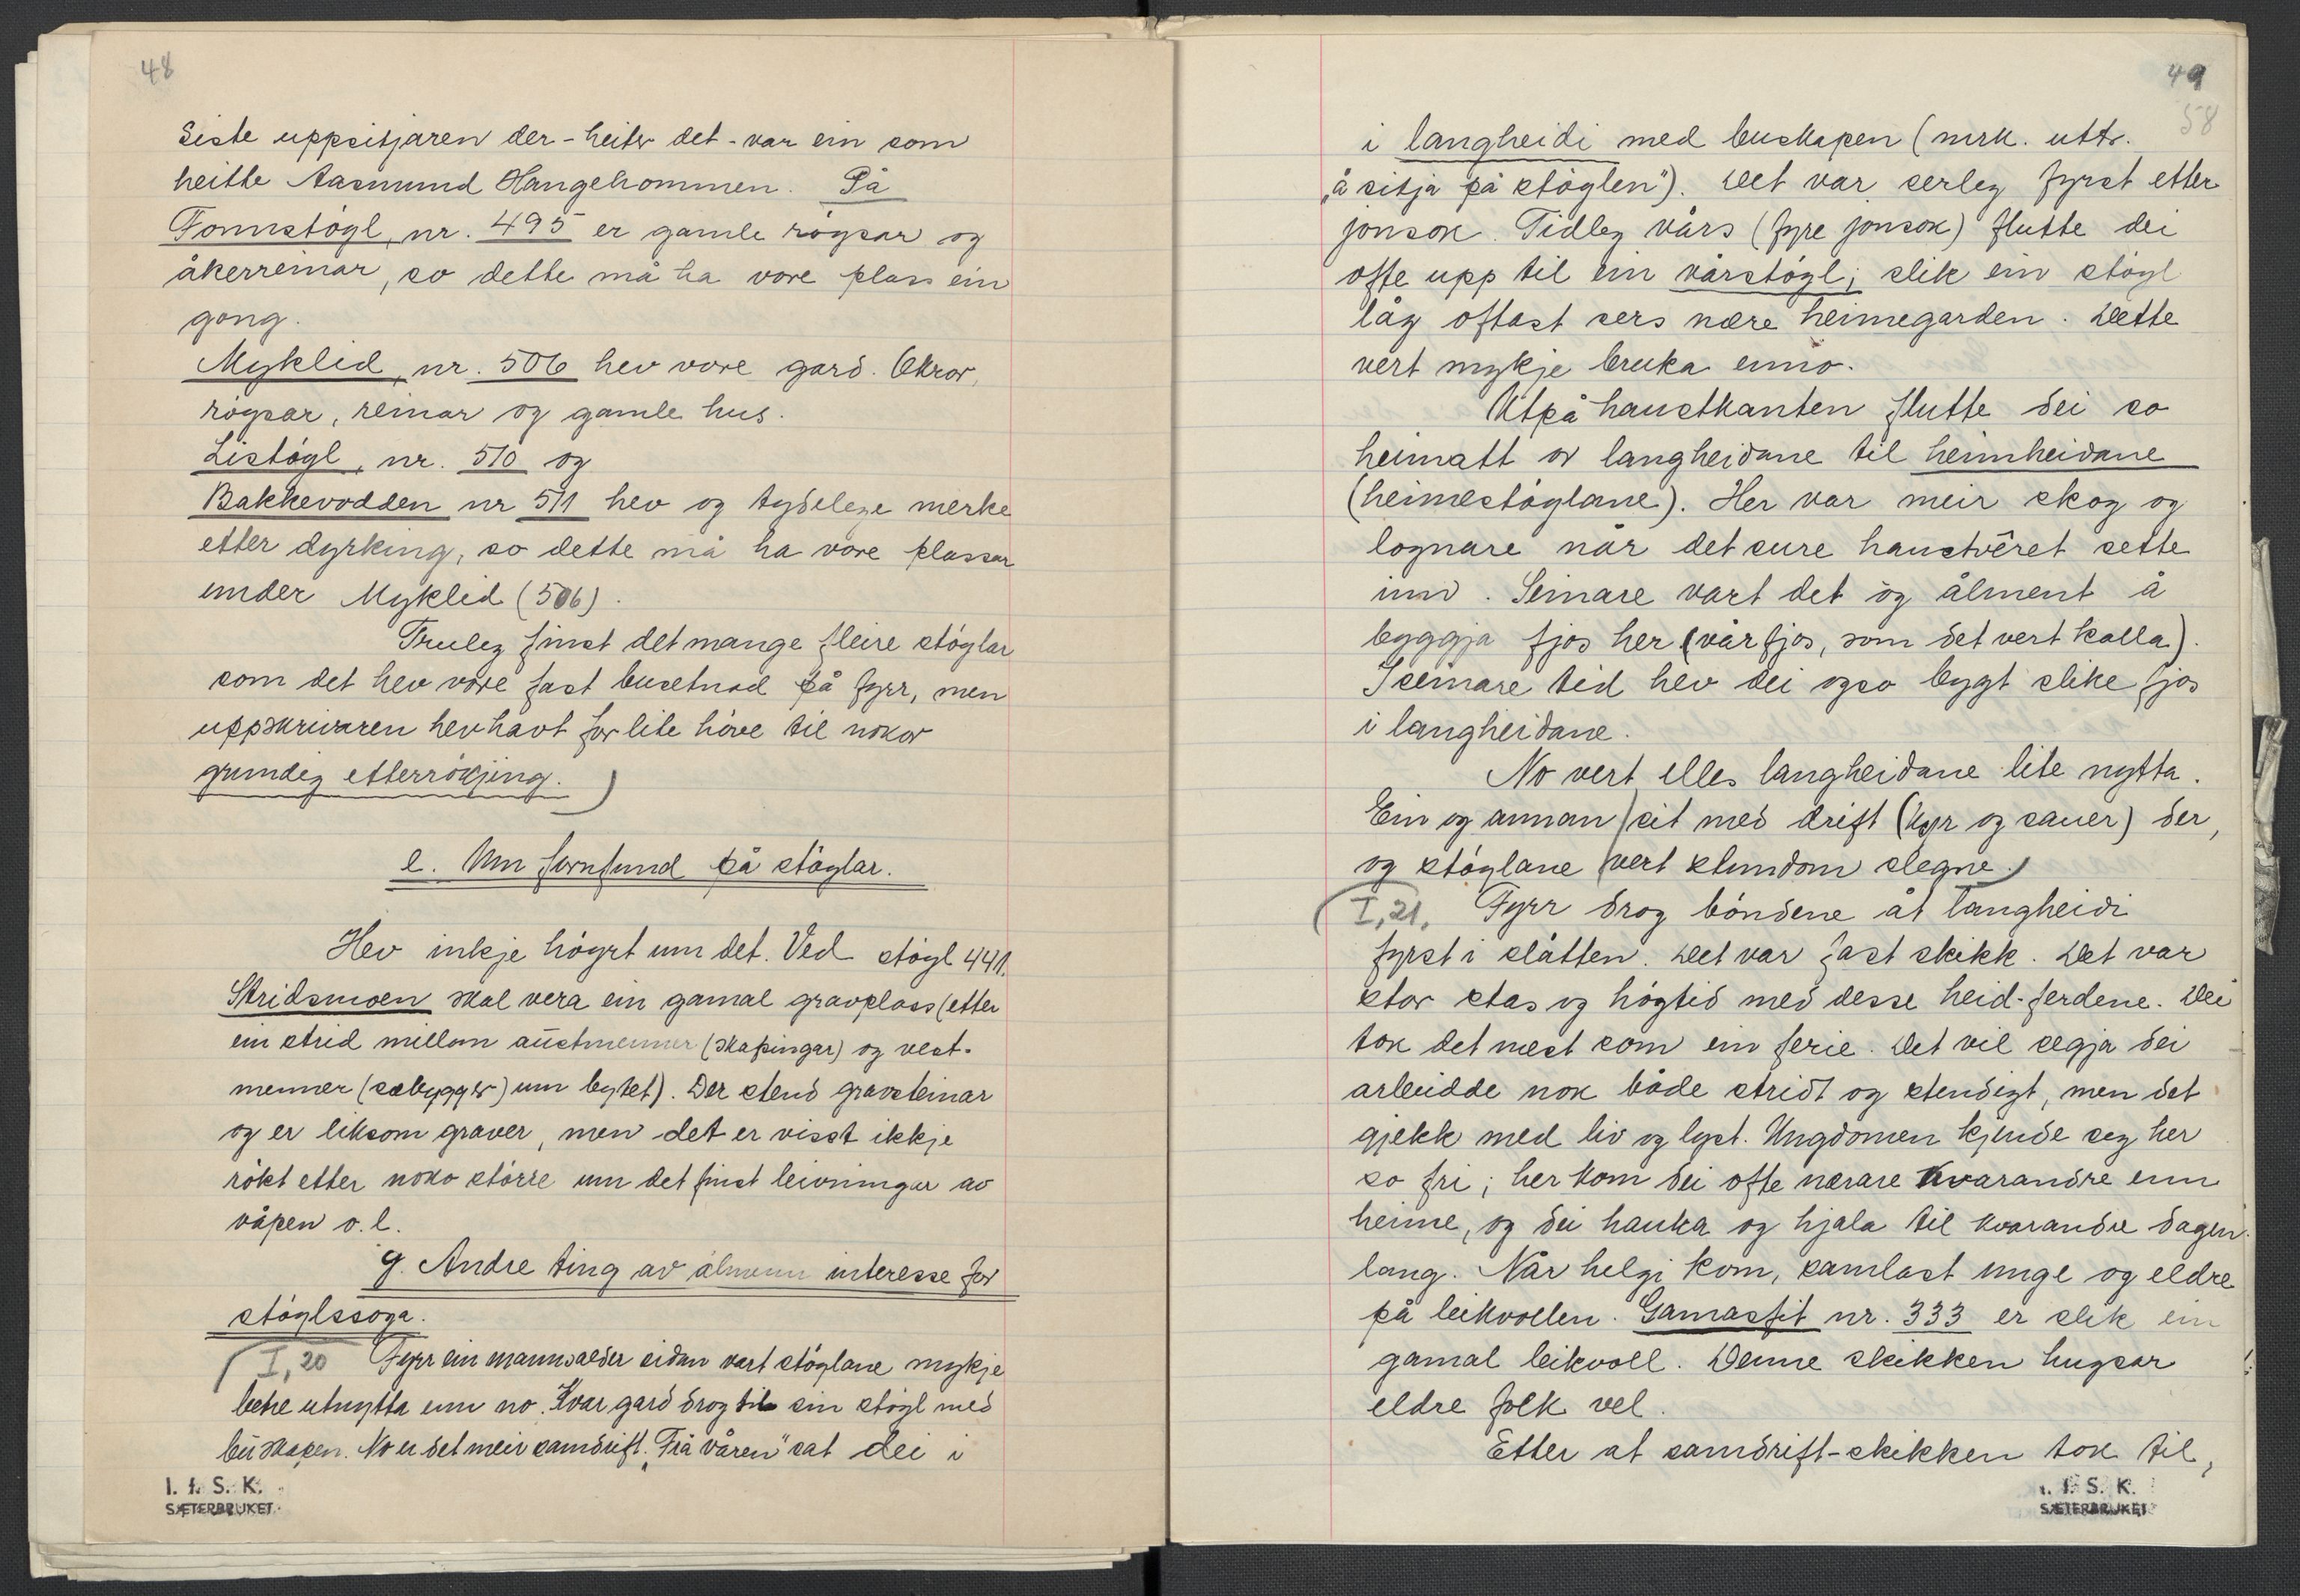 48
Siste uppsitjaren der - heiter det - var ein som
heitte Aasmund Hangehommen. På
Tonnstögl, nr. 495 er gamle rögsar og
åkerreinar, so dette må ha vore plass ein
gong.
Myklid, nr. 506 hev vore gard. Okror,
rögsar, reinar og gamle hus.
Listögl, nr. 510 og
Bakkevodden nr 511 hev og tydelege merke
etter dyrking, so dette må ha vore plassar
under Myklid (506).
Truleg finst det mange fleire stöglar
som det hev vore fast busetnad på fyrr, men
uppskrivaren hev havt for lite höve til nokor
grundig etterrökjing. )
e. Um fornfund på stöglar.
Hev inkje högrt um det. Ved stögl 441.
Stridsmoen skal vera ein gamal gravplass (etter
ein strid millom austmenner (skapingar) og vest-
menner (sæbyggjer) um bytet). Der stend gravsteinar
og er liksom graver, men det er visst ikkje
rökt etter noko större um det finst leivningar av
våpen o.l.
g. Andre ting av ålmenn interesse for
stöglssoga.
I, 20 Fyrr ein mannsalder sidan vart stöglane mykje
betre utnytta enn no. Kvar gard drog til sin stögl med
buskapen. No er det meir samdrift. "Frå våren" sat dei i
I. f. S. K.
SÆTERBRUKET.
49
58
i langheidi med buskapen (mrk. uttr.
"å sitja på stöglen"). Det var serleg fyrst etter
jonsok. Tidleg vårs (fyre jonsok) flutte dei
ofte upp til ein vårstögl; slik ein stögl
låg oftast sers nære heimegarden. Dette
vert mykje bruka enno.
Utpå haustkanten flutte dei so
heimatt or langheidane til heimheidane
(heimestöglane). Her var meir skog og
lognare når det sure haustvêret sette
inn. Seinare vart det og ålment å
byggja fjos her (vårfjos, som det vert kalla).
I seinare tid hev dei ogso bygt slike fjos
i langheidane.
No vert elles langheidane lite nytta.
Ein og annan sit med drift (kyr og sauer) der,
og stöglane vert stundom slegne.)
I, 21. Fyrr drog böndene åt langheidi
fyrst i slåtten. Det var fast skikk. Det var
stor stas og högtid med desse heid-ferdene. Dei
tok det mest som ein ferie. Det vil segja dei
arbeidde nok både stridt og stendigt, men det
gjekk med liv og lyst. Ungdomen kjende seg her
so fri; her kom dei ofte nærare kvarandre enn
heime, og dei hauka og hjala til kvarandre dagen
lang. Når helgi kom, samlast unge og eldre
på leikvollen. Gamasfit nr. 333 er slik ein
gamal leikvoll. Denne skikken hugsar
eldre folk vel.
Etter at samdrift-skikken tok til,
I. f. S. K.
SÆTERBRUKET